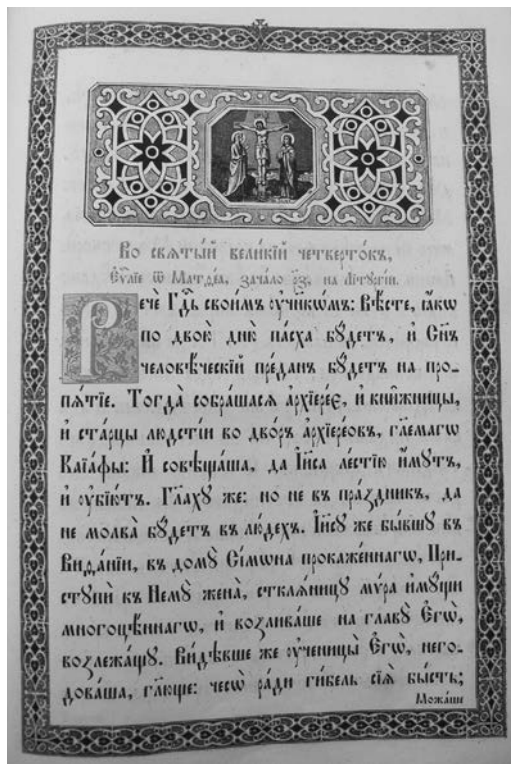 Во свѧты́й вели́кїй четверто́къ,
Є҆ѵⷢ҇лїе ѿ Матѳе́а, зача́ло р҃з, на лїтꙋргі́и.
Речѐ Гдⷭ҇ь свои̑мъ ᲂу҆чн҃кѡ́мъ: Вѣ́сте, ꙗ҆́кѡ
по двою̀ дню̀ па́сха бꙋ́детъ, и҆ Сн҃ъ
человѣ́ческїй пре́данъ бꙋ́детъ на про-
пѧ́тїе. Тогда̀ собра́шасѧ а҆рхїере́є, и҆ кни́жницы,
и҆ ста́рцы лю́дстїи во дво́ръ а҆рхїере́овъ, гл҃емагѡ
Каїа́фы: И҆ совѣща́ша, да І҆и҃са ле́стїю и҆́мꙋтъ,
и҆ ᲂу҆бїю́тъ. Гл҃ахꙋ же: но не въ пра́здникъ, да
не молва̀ бꙋ́детъ въ лю́дехъ. І҆и҃сꙋ же бы́вшꙋ въ
Виѳа́нїи, въ домꙋ̀ Сі́мѡна прокаже́ннагѡ, При-
стꙋпѝ къ Немꙋ̀ жена̀, стклѧ́ницꙋ мѵ́ра и҆мꙋ́щи
многоцѣ́ннагѡ, и҆ возлива́ше на главꙋ̀ Є҆гѡ̀,
возлежа́щꙋ. Ви́дѣвше же ᲂу҆ченицы̀ Є҆гѡ̀, него-
дова́ша, гл҃юще: чесѡ̀ ра́ди ги́бель сїѧ̀ бы́сть;
Можа́ше